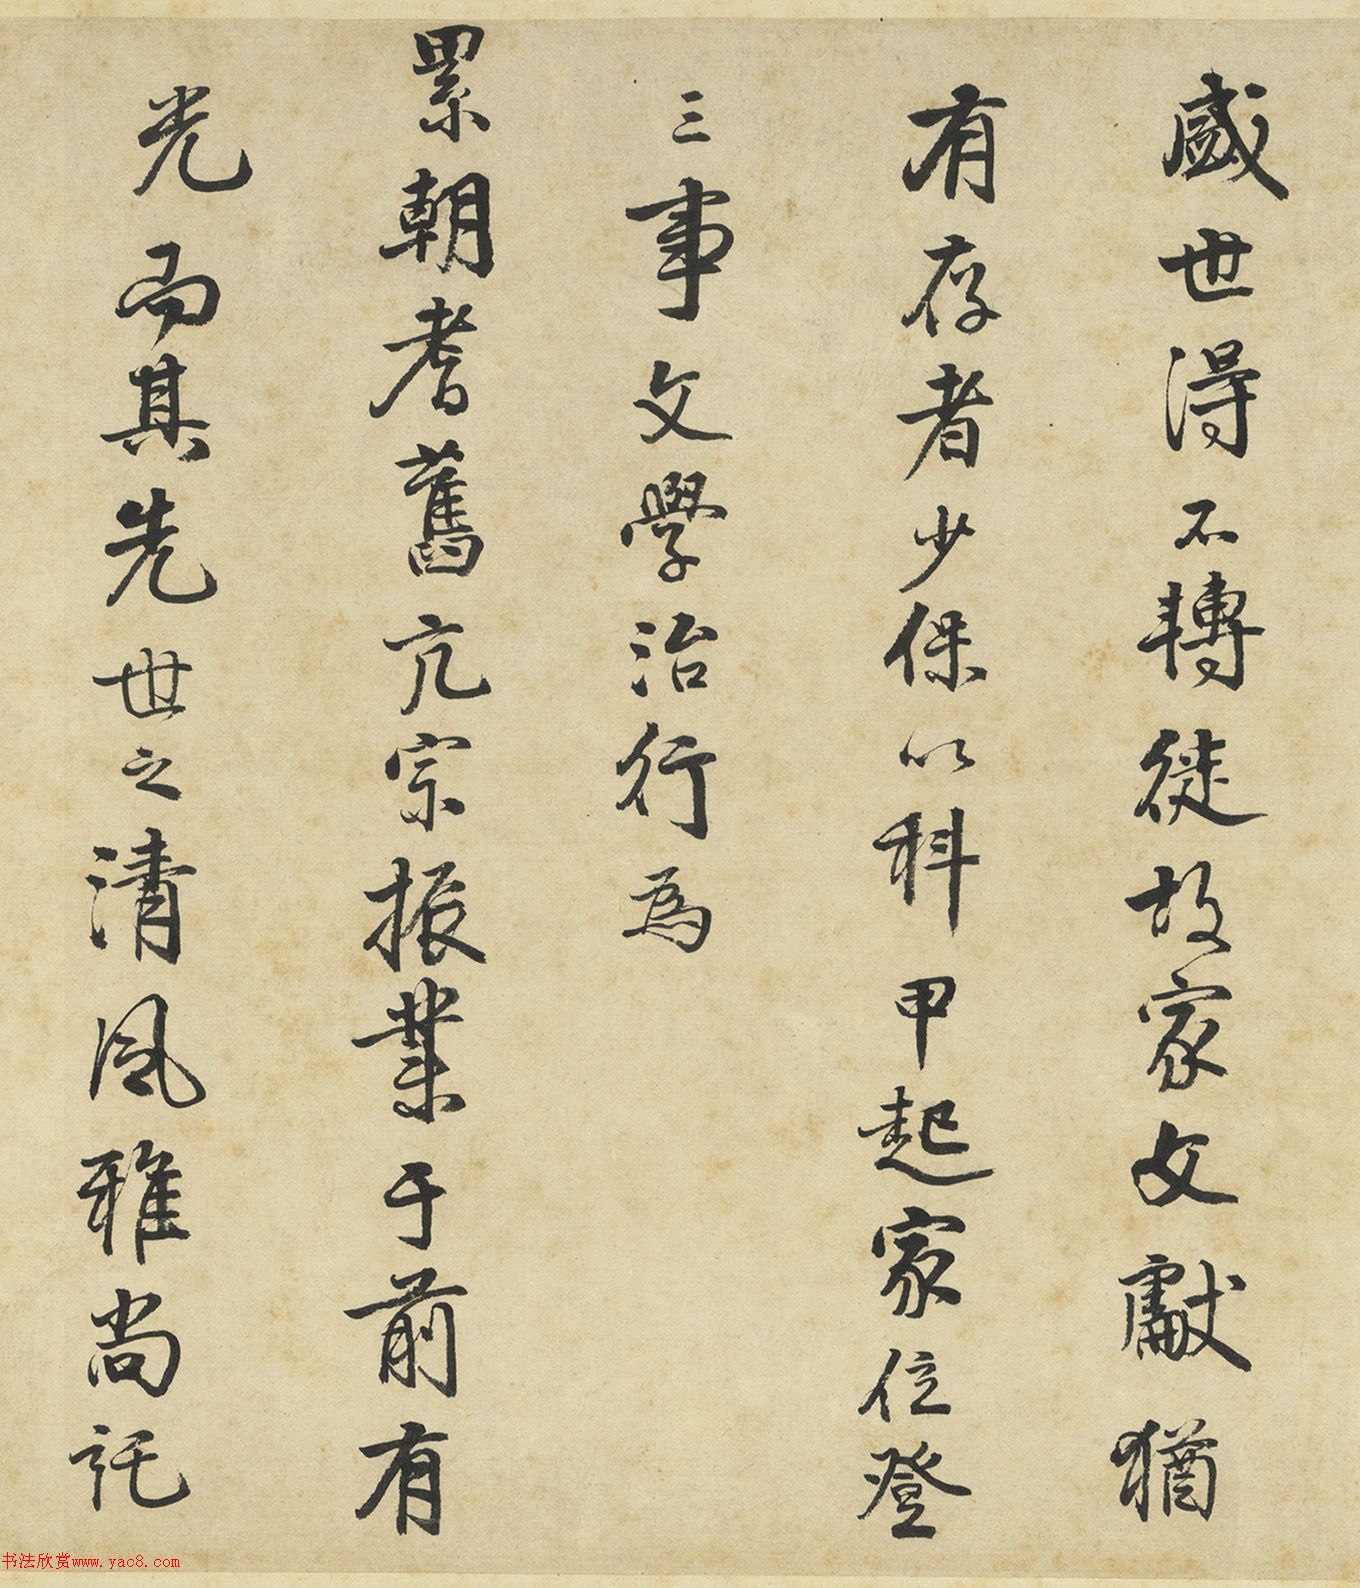 盛世得不轉徙故家文獻猶
有存者少保以科甲起家位登
三事文學治行為
累朝耆舊亢宗振業于前有
光而其先世之清風雅尚託
书法欣赏www.yac8.com